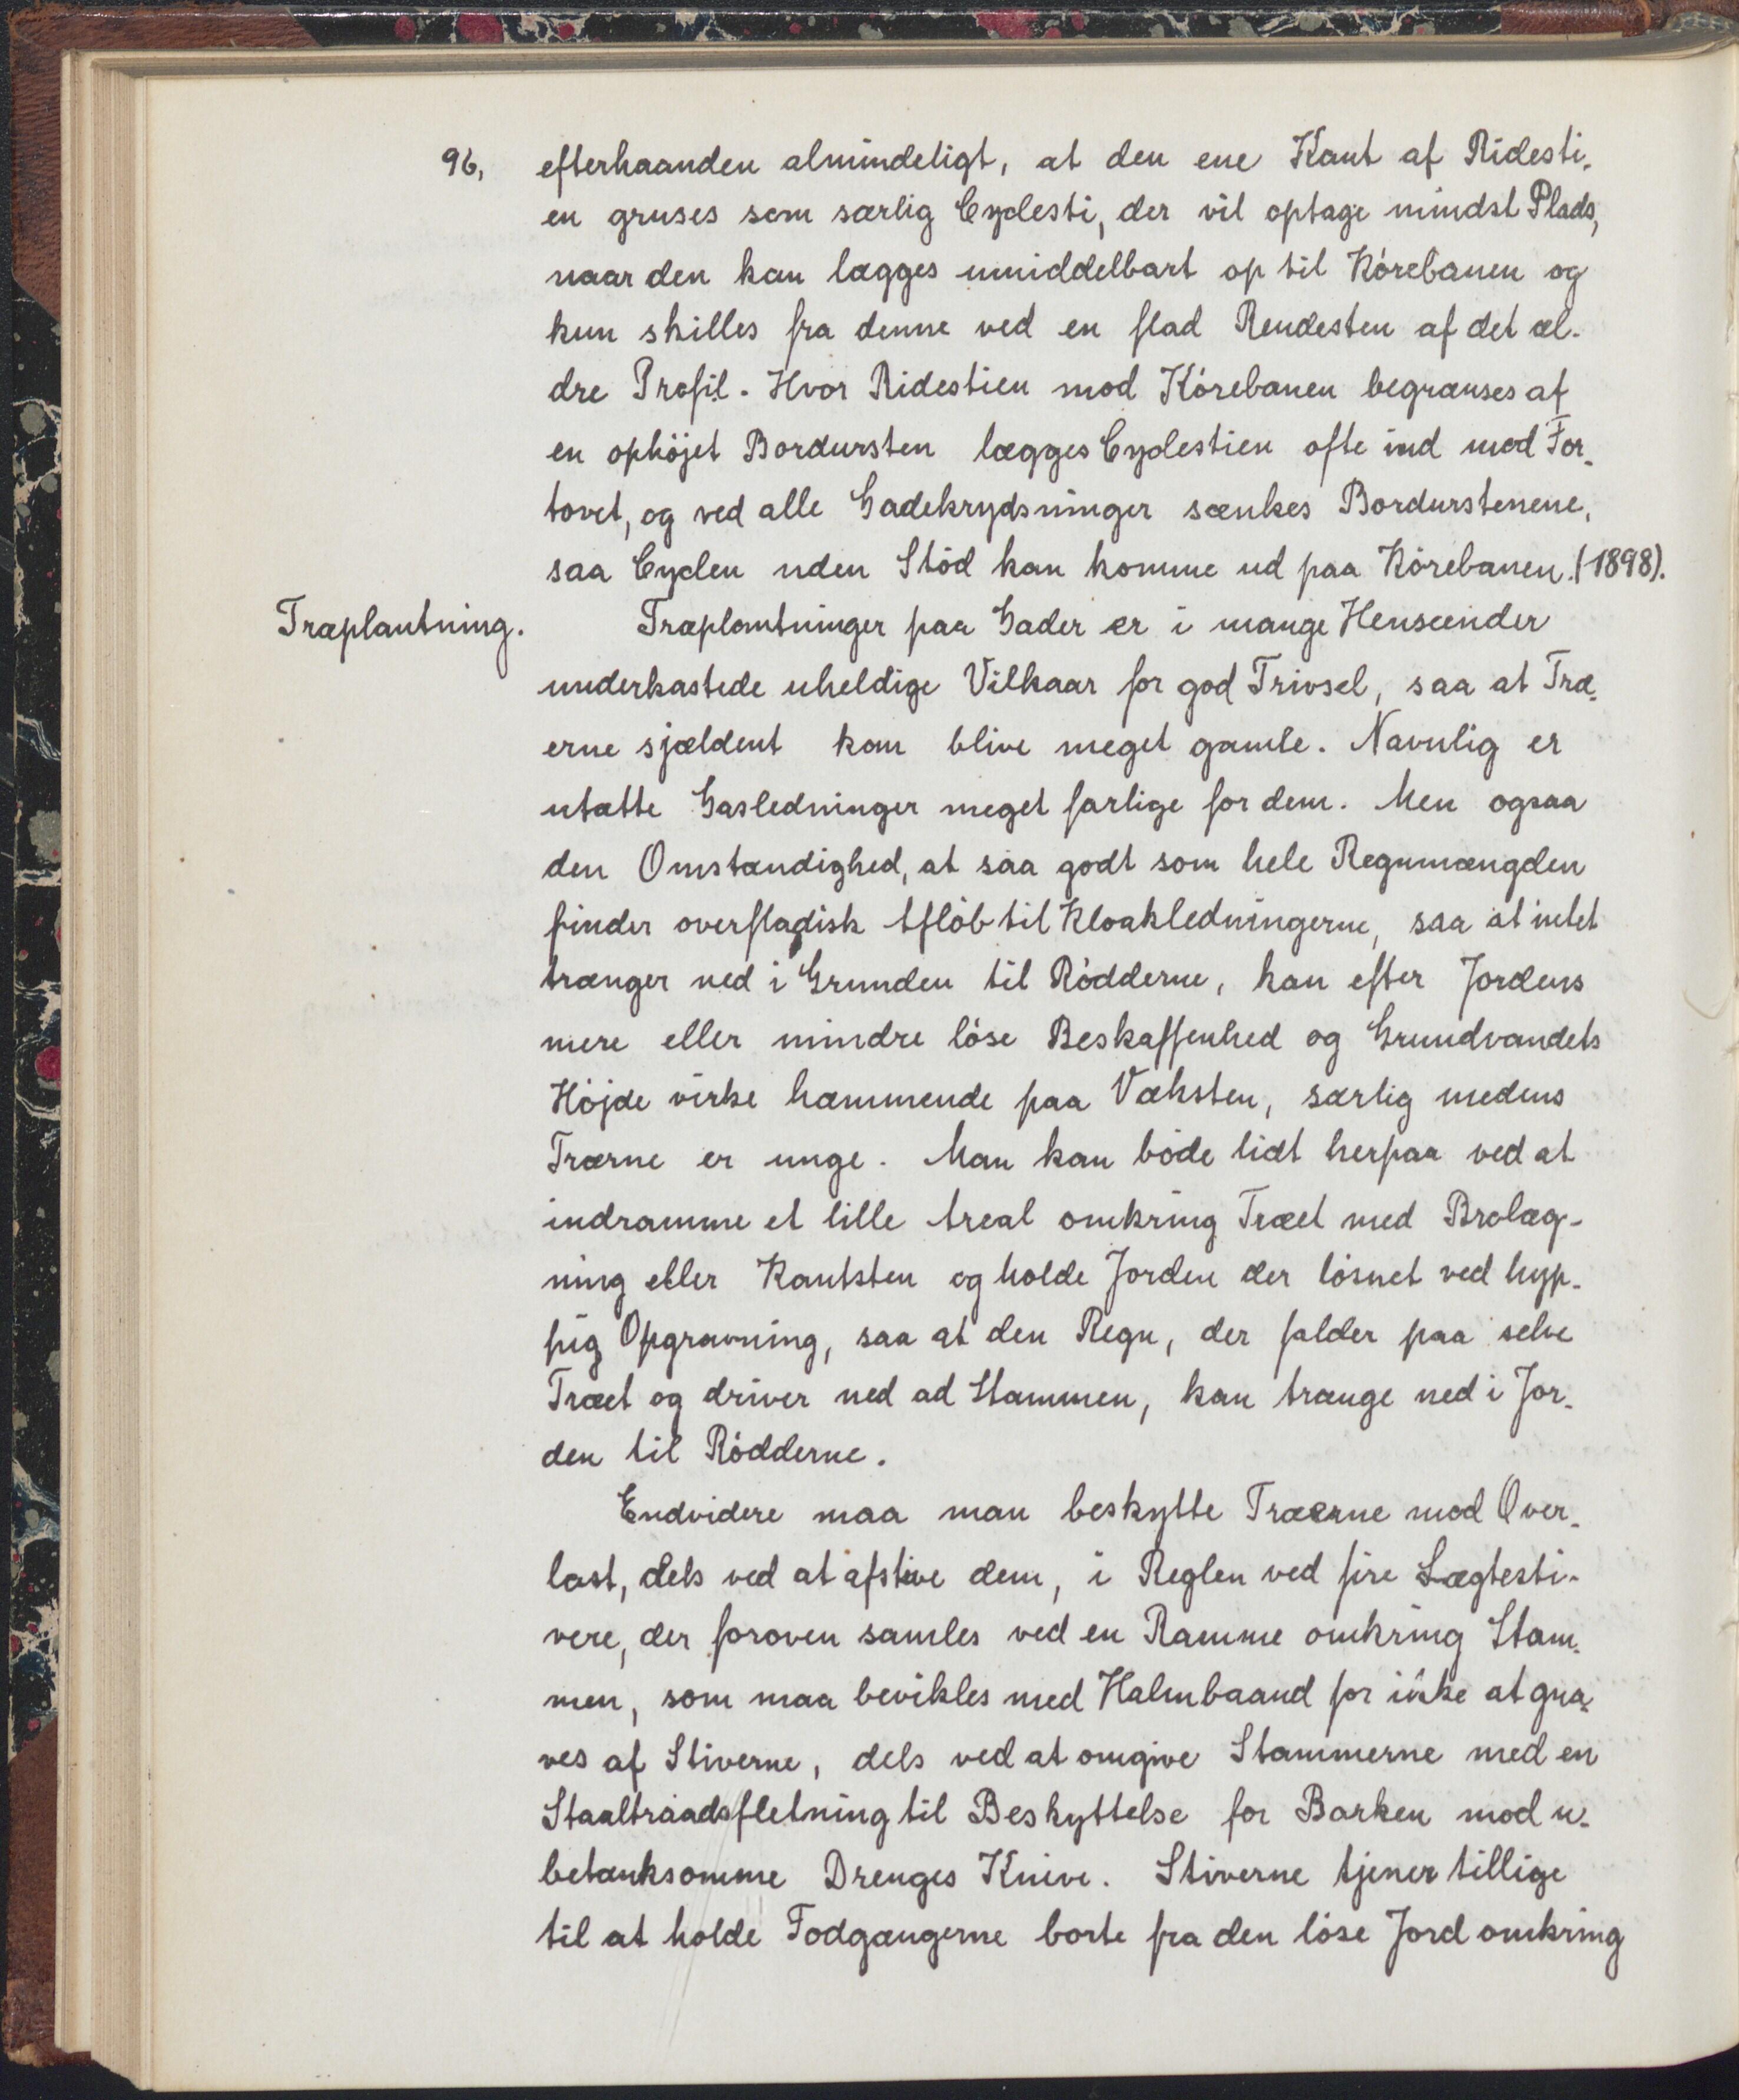 96, efterhaanden almindeligt, at den ene Kant af Ridesti-
en gruses som særlig Cyclesti, der vil optage mindst Plads,
naar den kan lægges umiddelbart op til Kørebanen og
kun skilles fra denne ved en flad Rendesten af det æl-
dre Profil. Hvor Ridestien mod Kørebanen begrænses af
en ophöjet Bordursten lægges Cyclestien ofte ind mod For-
tovet, og ved alle Gadekrydsninger sænkes Bordurstenene,
saa Cyclen uden Stöd kan komme ud paa Kørebanen. (1898).
Træplantning. Træplantninger paa Gader er i mange Henseender
underkastede uheldige Vilkaar for god Trivsel, saa at Træ-
erne sjældent kan blive meget gamle. Navnlig er
utætte Gasledninger meget farlige for dem. Men ogsaa
den Omstændighed, at saa godt som hele Regnmængden
finder overfladisk Afløb til Kloakledningerne, saa at intet
trænger ned i Grunden til Rødderne, kan efter Jordens
mere eller mindre løse Beskaffenhed og Grundvandets
Højde virke hæmmende paa Væksten, særlig medens
Træerne er unge. Man kan bøde lidt herpaa ved at
indramme et lille Areal omkring Træet med Brolæg-
ning eller Kantsten og holde Jorden der løsnet ved hyp-
pig Opgravning, saa at den Regn, der falder paa selve
Træet og driver ned ad Stammen, kan trænge ned i Jor-
den til Rødderne.
Endvidere maa man beskytte Træerne mod Over-
last, dels ved at afstive dem, i Reglen ved fire Lægtesti-
vere, der foroven samles ved en Ramme omkring Stam-
men, som maa bevikles med Halmbaand for ikke at gna-
ves af Stiverne, dels ved at omgive Stammerne med en
Staaltraadsfletning til Beskyttelse for Barken mod u-
betænksomme Drenges Knive. Stiverne tjener tillige
til at holde Fodgængerne borte fra den løse Jord omkring